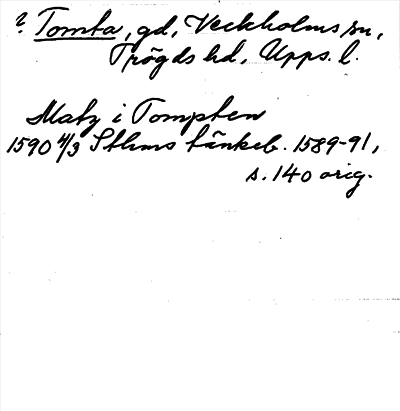 ? Tomta, gd, Veckholms sn,
Trögds hd, Upps. l.
Matz i Tompten
1590 4/3 Sthms tänkeb. 1589-91,
s. 140 orig.